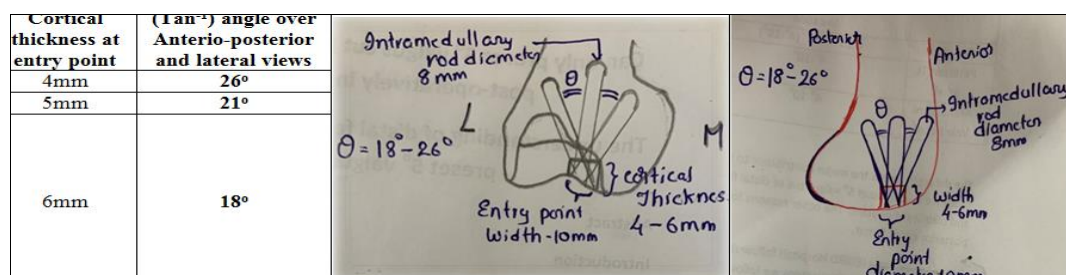 Cortical
thickness at
entry point
(Tan⁻¹) angle over
Anterio-posterior
and lateral views
4mm
26°
5mm
21°
6mm
18°
Intramedullary
rod diameter
8mm
θ
L
M
θ = 18°-26°
} cortical
Thicknes.
4-6mm
Entry point
Width-10mm
Posterior
Anterior
θ = 18°-26°
θ
Intramedullary
rod
diameter
8mm
width
4-6mm
Entry
point